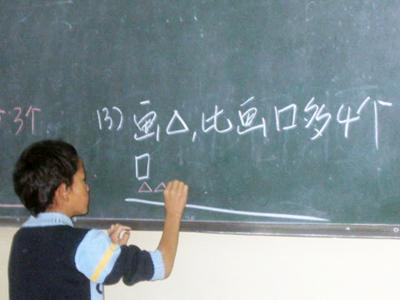 3个
(3) 画△,比画口多4个
口
△△